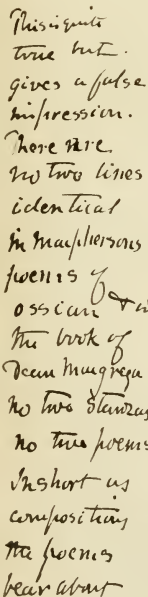 This is quite
true but.
gives a false
impression.
There are
no two lines
identical
in Macphersons
poems of
ossian & in
the book of
Dean Macgregor
no two stanzas
no two poems
In short as
composition
the poems
bear about